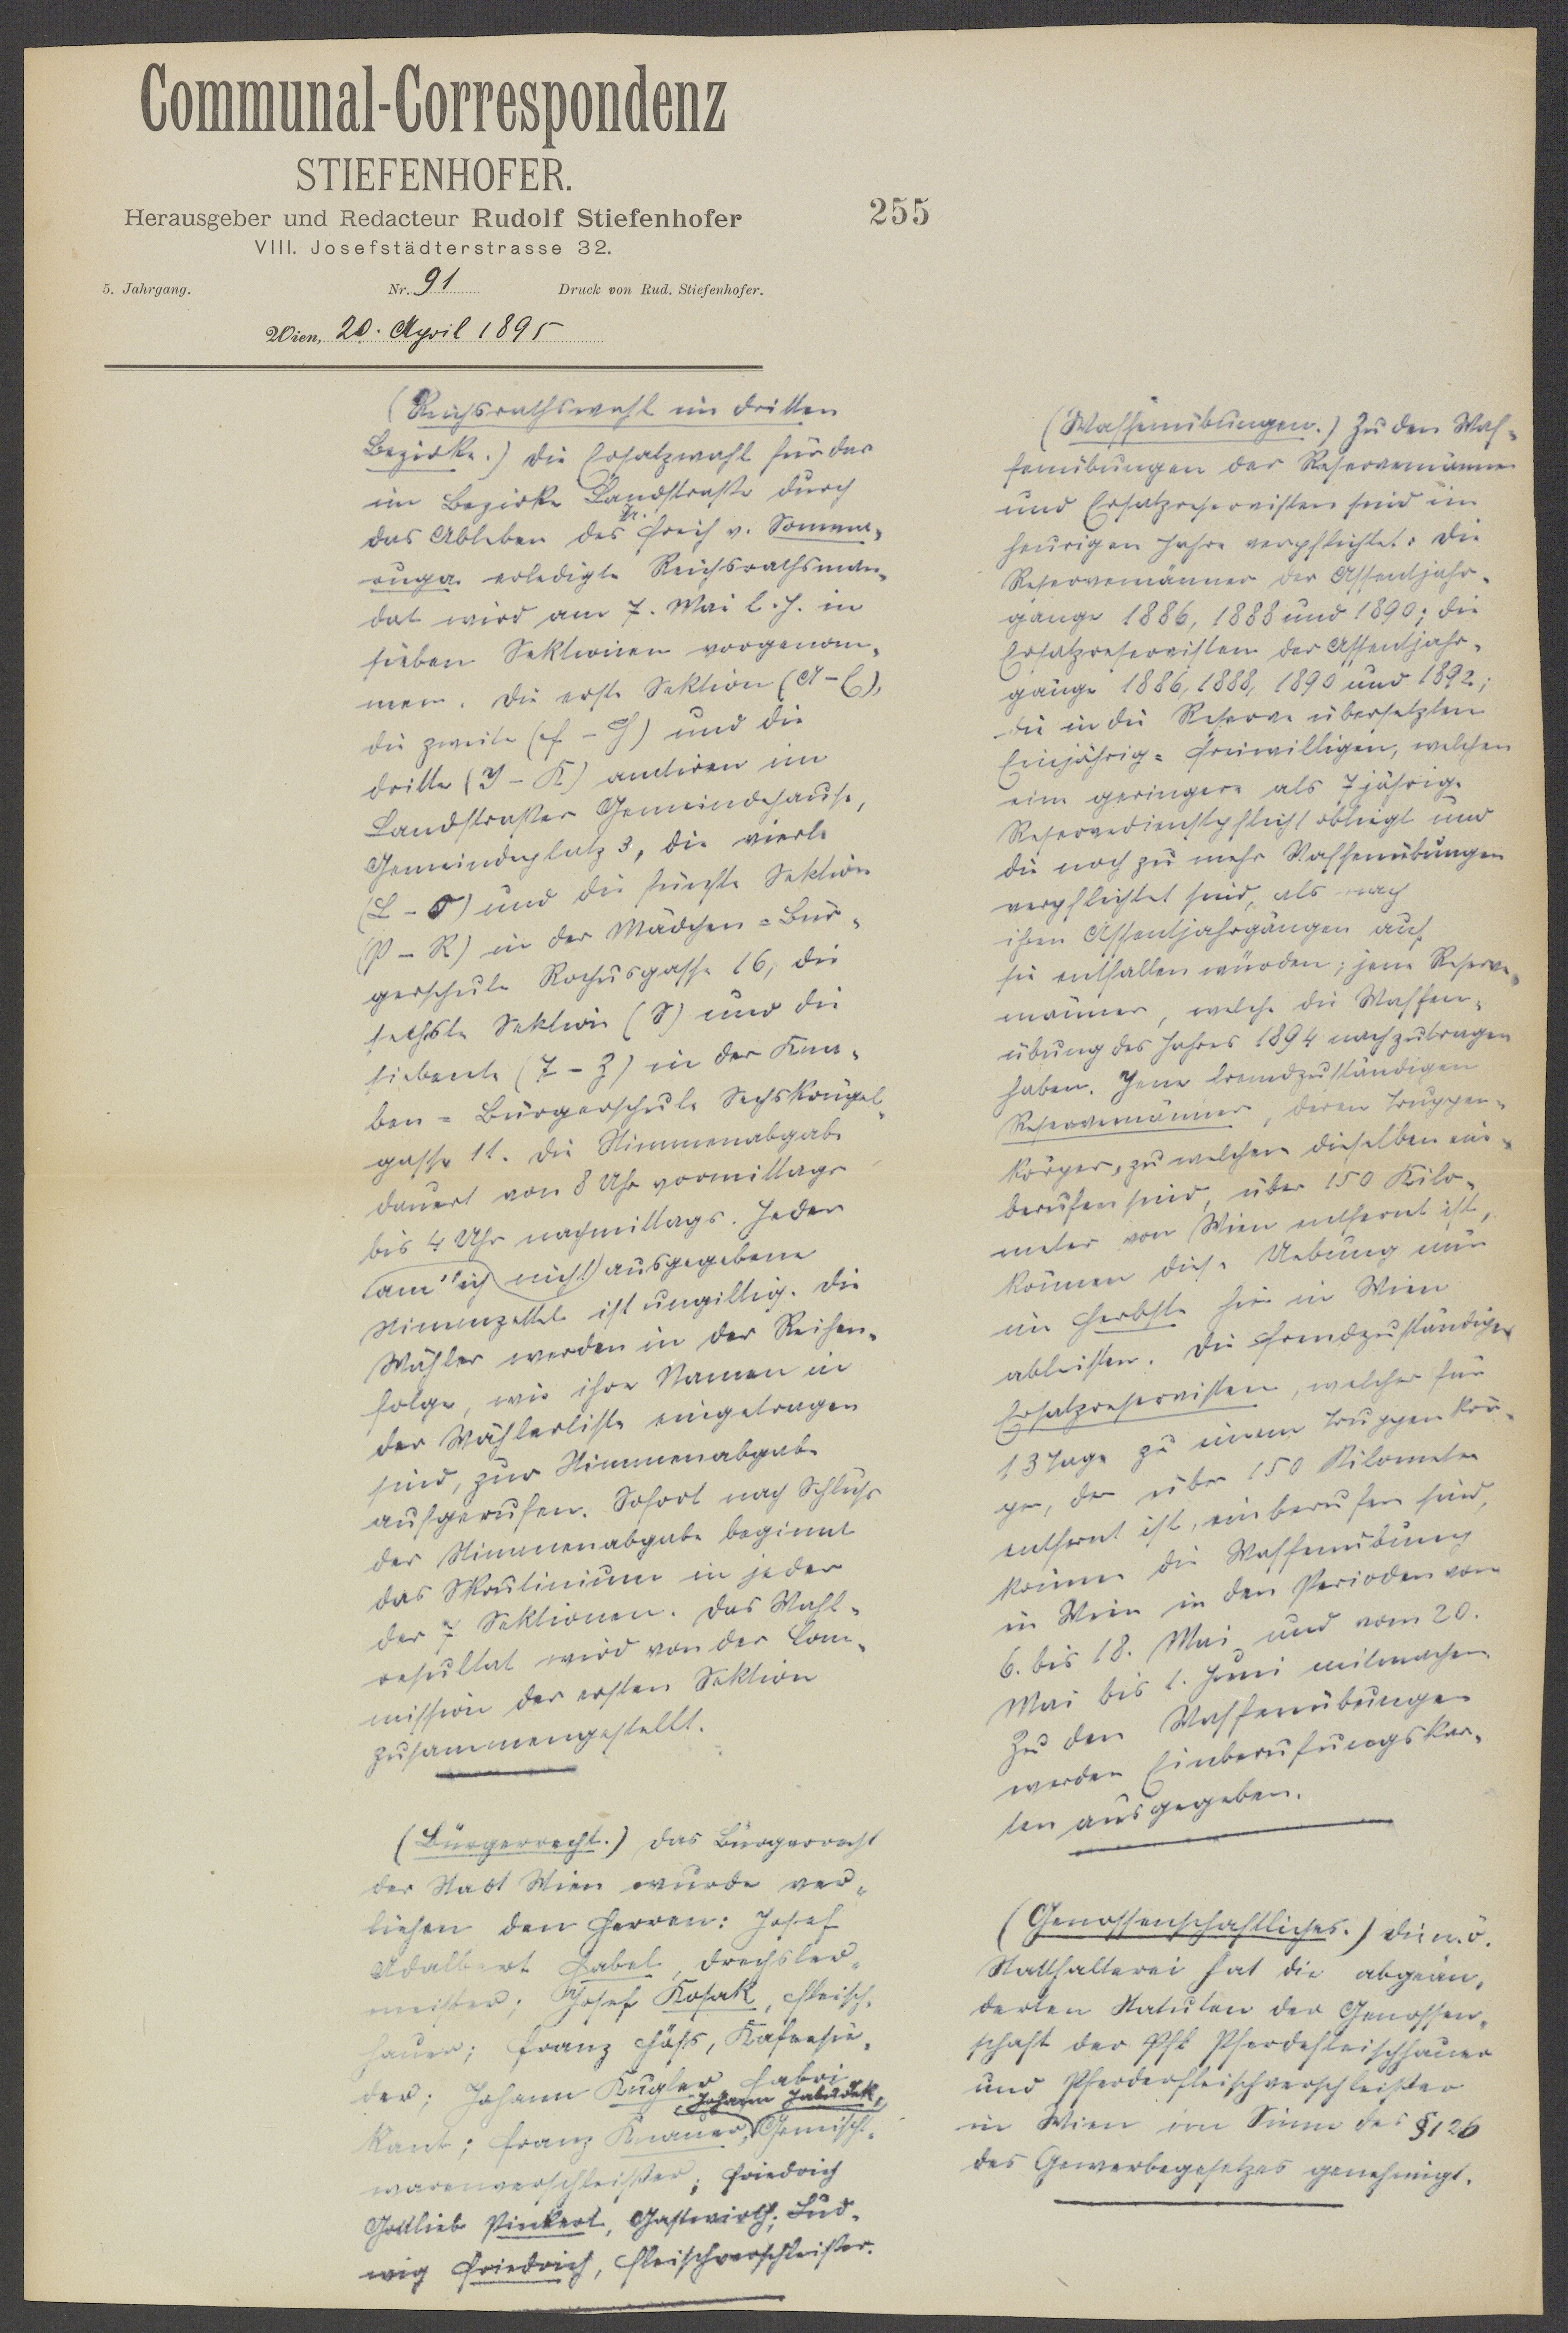 Communal-Correspondenz
STIEFENHOFER.
Herausgeber und Redacteur Rudolf Stiefenhofer
VIII. Josefstädterstrasse 32.
255
5. Jahrgang. Nr. 91 Druck von Rud. Stiefenhofer.
Wien, 20. April 1895
(Reichsrathswahl im dritten
Bezirke.) Die Ersatzwahl für das
im Bezirke Landstraße durch
das Ableben des Fr. Freih v. Somma-
ruga erledigte Reichsrathsman-
dat wird am 7. Mai l. J. in
sieben Sektionen vorgenom-
men. Die erste Sektion (A-E),
die zweite (F-H) und die
dritte (I-K) amtiren im
Landstraßer Gemeindehause,
Gemeindeplatz 3, die vierte
(L-O) und die fünfte Sektion
(P-R) in der Mädchen-Bür-
gerschule Rochusgasse 16, die
sechste Sektion (S) und die
siebente (T-Z) in der Kna-
ben-Bürgerschule Sechskrügel-
gasse 11. Die Stimmenabgabe
dauert von 8 Uhr vormittags
bis 4 Uhr nachmittags. Jeder
amtlich nicht ausgegebene
Stimmzettel ist ungiltig. Die
Wähler werden in der Reihen-
folge, wie ihre Namen in
der Wählerliste eingetragen
sind, zur Stimmenabgabe
aufgerufen. Sofort nach Schluss
der Stimmenabgabe beginnt
das Skrutinium in jeder
der 7 Sektionen. Das Wahl-
resultat wird von der Com-
mission der ersten Sektion
zusammengestellt.
(Bürgerrecht.) Das Bürgerrecht
der Stadt Wien wurde ver-
liehen den Herren: Josef
Adalbert Habel, Drechsler-
meister; Josef Kosak, Fleisch-
hauer; Franz Höß, Kafeesie-
der; Johann Kugler Fabri-
Johann Jabudek,
kant; Franz Knauer, Gemischt-
warenverschleißer; Friedrich
Gottlieb Pinkert, Gastwirth; Lud-
wig Friedrich, Fleischverschleißer.
(Waffenübungen.) Zu den Waf-
fenübungen der Reservemänner
und Ersatzreservisten sind im
heurigen Jahre verpflichtet: Die
Reservemänner der Assentjahr-
gänge 1886, 1888 und 1890; die
Ersatzreservisten der Assentjahr-
gänge 1886, 1888, 1890 und 1892;
die in die Reserve übersetzten
Einjährig-Freiwilligen, welchen
eine geringere als 7jährige
Reservedienstpflicht obliegt und
die noch zu mehr Waffenübungen
verpflichtet sind, als nach
ihren Assentjahrgängen auf
sie entfallen würden; jene Reserve-
männer, welche die Waffen-
übung des Jahres 1894 nachzutragen
haben. Jene fremdzuständigen
Reservemänner, deren Truppen-
körper, zu welchem dieselben ein-
berufen sind, über 150 Kilo-
meter von Wien entfernt ist,
können diese Uebung nur
im Herbste hier in Wien
ableisten. Die fremdzuständigen
Ersatzreservisten, welche für
13 Tage zu einem Truppenkör-
per, der über 150 Kilometer
entfernt ist, einberufen sind,
können die Waffenübung
in Wien in den Perioden vom
6. bis 18. Mai und vom 20.
Mai bis 1. Juni mitmachen
Zu den Waffenübungen
werden Einberufungskar-
ten ausgegeben.
(Genossenschaftliches.) Die n.ö.
Statthalterei hat die abgeän-
derten Statuten der Genossen-
schaft der Pfl Pferdefleischhauer
und Pferdefleischverschleißer
in Wien im Sinne des §126
des Gewerbegesetzes genehmigt.